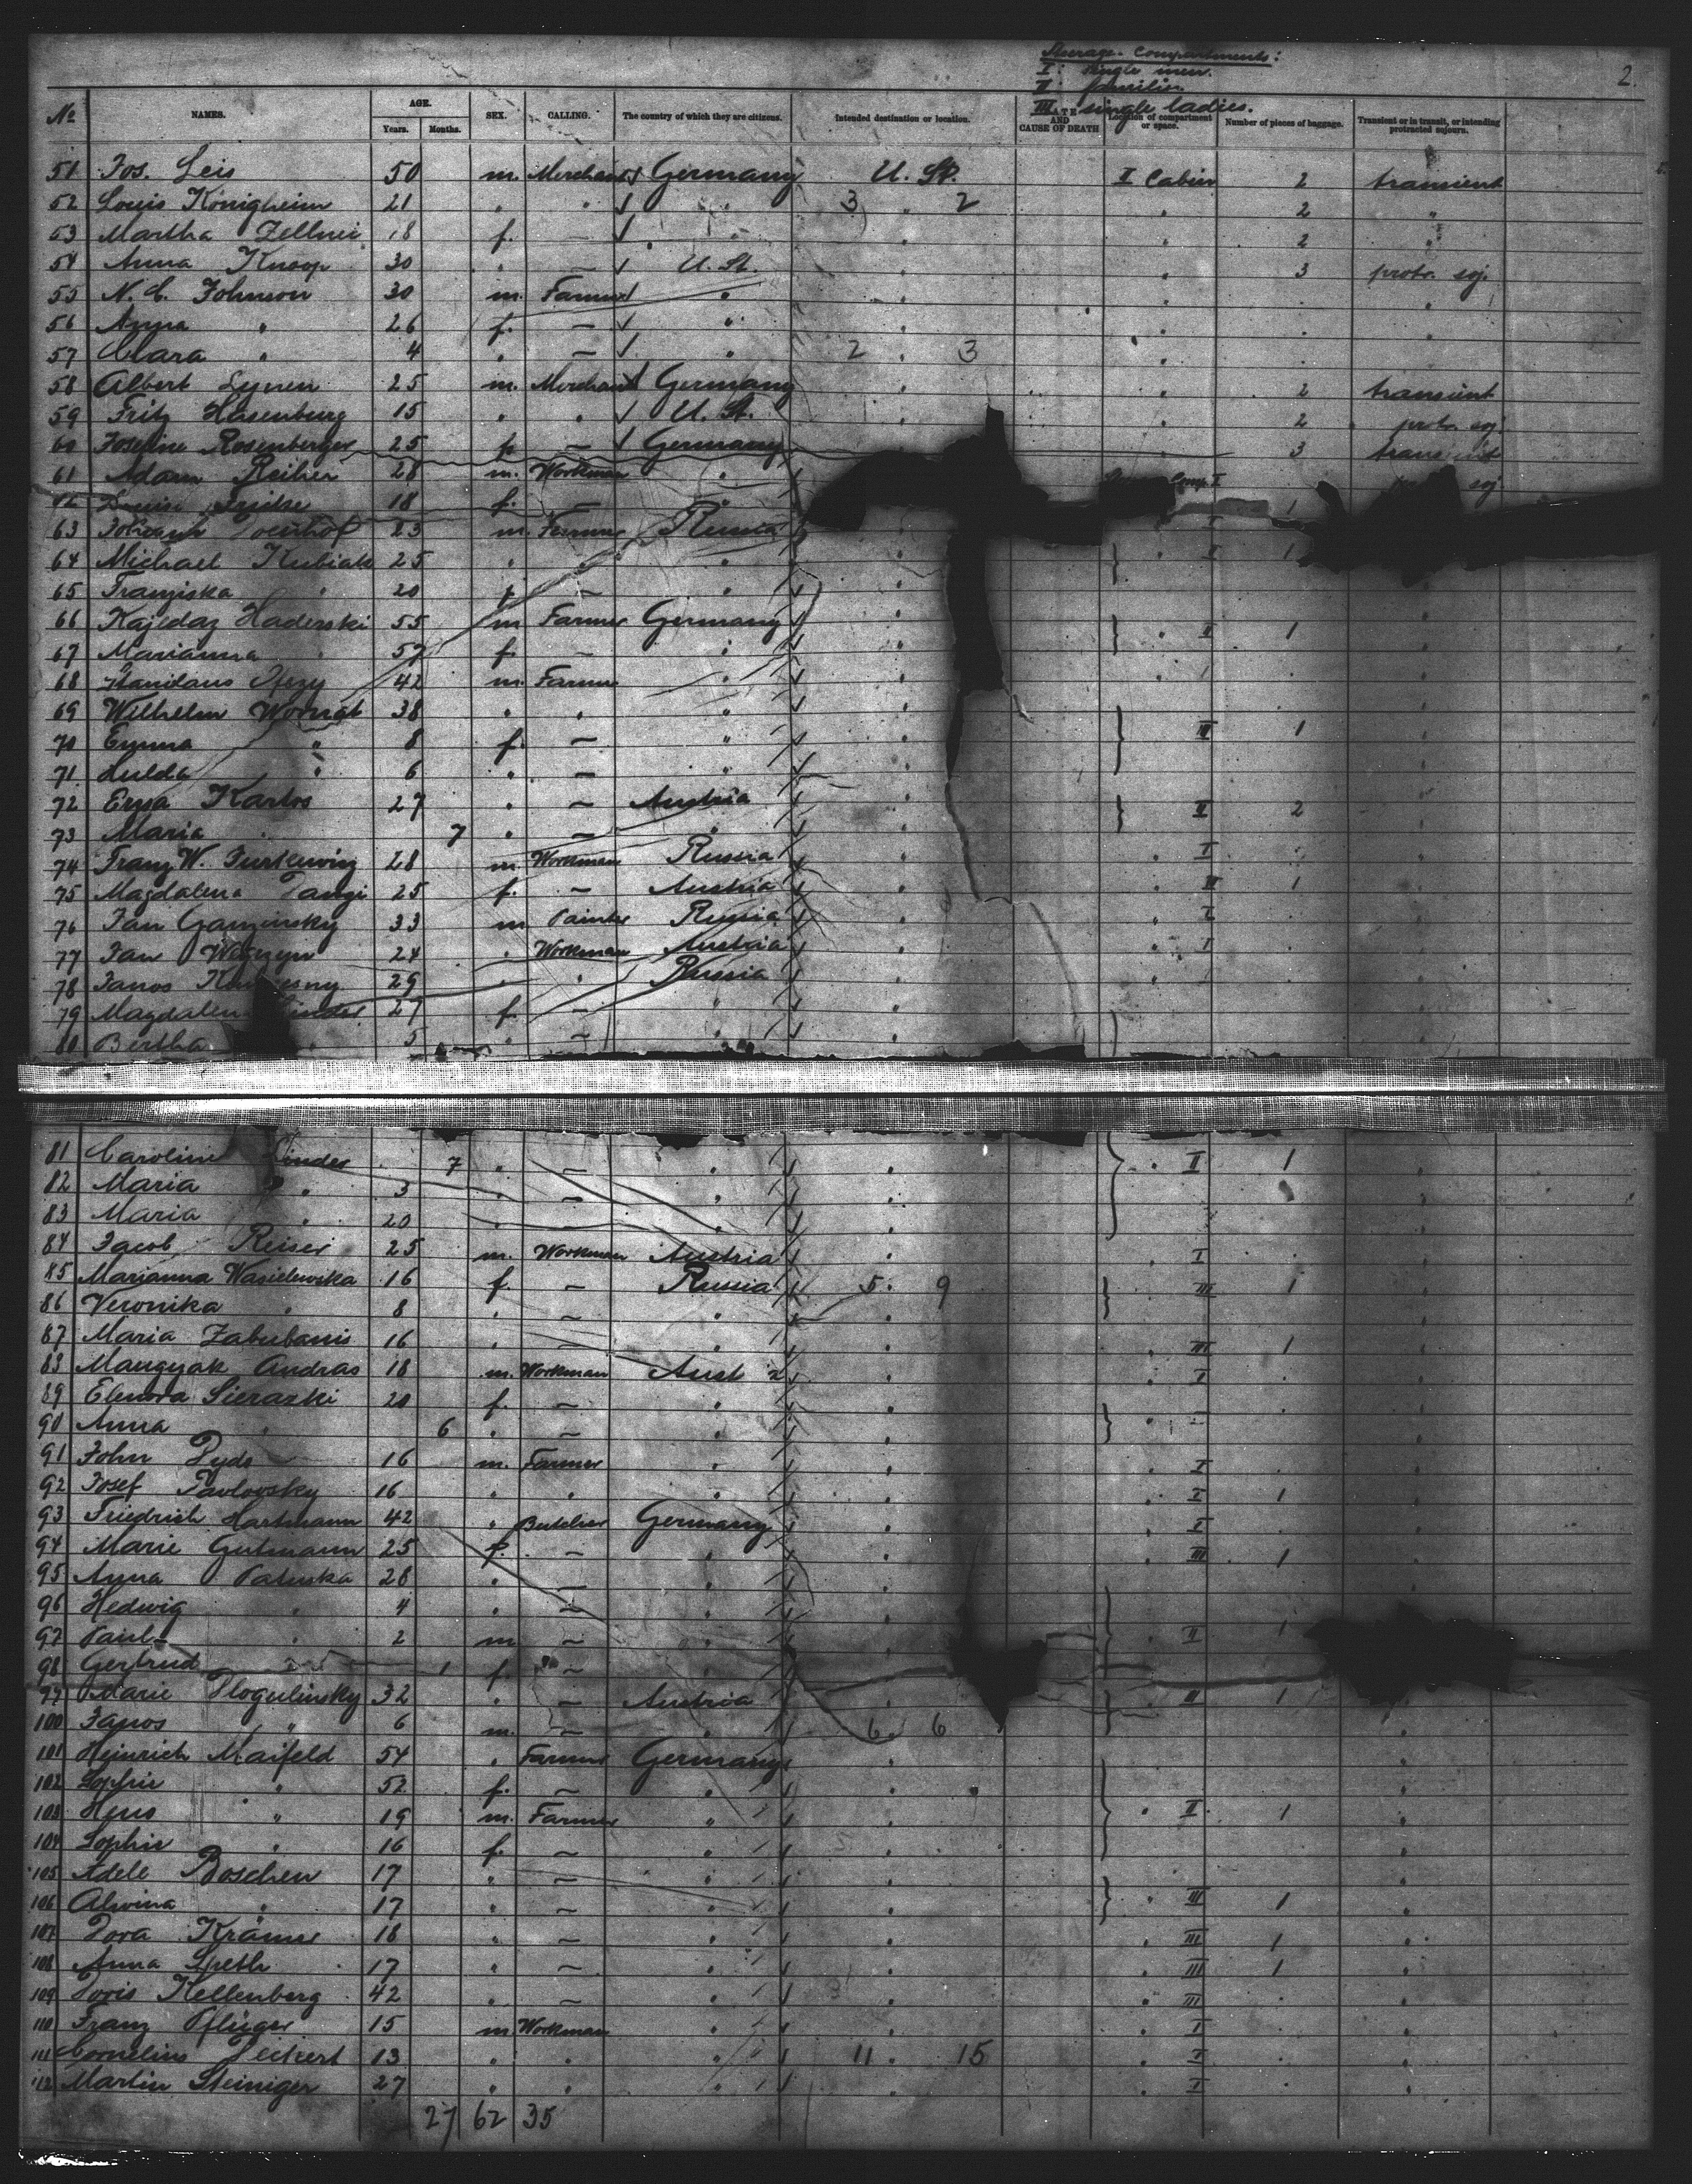 Steerage Compartments:
I: single men.
II: families.
III: single ladies.
2.
No NAMES. AGE. Years. Months. SEX. CALLING. The country of which they are citizens. Intended destination or location. DATE AND CAUSE OF DEATH Location of compartment or space. Number of pieces of baggage. Transient or in transit, or intending protracted sojourn.
51 Jos. Leis 50 m. Merchant Germany U. St. II Cabin 2 transient
52 Louis Königheim 21 " " " 3 " 2 " 2 "
53 Martha Zellner 18 f. — " " " 2 "
54 Anna Knoop 30 " — U. St. " " 3 protr. soj.
55 N. C. Johnson 30 m. Farmer " " " " "
56 Anna " 26 f. — " " " " "
57 Clara " 4 " — " 2 " 3 " " "
58 Albert Lynen 25 m. Merchant Germany " " 2 transient
59 Fritz Hasenburg 15 " " U. St. " " 2 protr. soj.
60 Josefine Rosenberger 25 f. — Germany " 3 transient
61 Adam Reiher 28 m. Workman " Comp. I soj
62 Louise 18 f. — " 1
63 23 m. Farmer Russia I
64 Michael Kubiak 25 " " " " II 1
65 Franziska " 20 f. — " "
66 Kajedaz Haderski 55 m Farmer Germany " " II 1 "
67 Marianna " 57 f. — " " "
68 42 m. Farmer " " "
69 Wilhelm Wornat 38 " " " " "
70 Emma " 8 f. — " " III 1 "
71 Hulda " 6 " — " " "
72 Erga Karlos 27 " — Austria " II 2 "
73 Maria " 7 " — " " "
74 Franz W. Jurkewinz 28 m Workman Russia " " I " "
75 Magdalena Tangi 25 f. — Austria " " III 1 "
76 Jan Ganzinsky 33 m Painter Russia " " I " "
77 Jan Wegrzyn 24 " Workman Austria " " I " "
78 Janos 29 " " Russia " I " "
79 Magdalena Linder 27 f. — " " "
80 Bertha " 5 " — " " "
81 Caroline Linder 7 " — " " " II 1 "
82 Maria " 3 " — " " "
83 Maria " 20 " — " " "
84 Jacob Reiser 25 m. Workman Austria " " I " "
85 Marianna Wasielewska 16 f. — Russia 5 " 9 " III 1 "
86 Veronika " 8 " — " " "
87 Maria Zabubanis 16 " — " " " III 1 "
88 Mangyak Andras 18 m. Workman Aust " " I " "
89 Elenora Sierazki 20 f. — " " "
90 Anna " 6 " — " " " — " "
91 John Pyds 16 m. Farmer " " " I " "
92 Josef Pavlovsky 16 " " " " " I 1 "
93 Friedrich Hartmann 42 " Butcher Germany " " I " "
94 Marie Gutmann 25 f. — " " " III 1 "
95 Anna Patuska 28 " — " " "
96 Hedwig " 4 " — " "
97 Paul " 2 m — " " II 1
98 Gertrud " 1 f. — "
99 Marie Plogulinsky 32 " — Austria " " II 1 "
100 Janos " 6 m. — " 6 " 6 "
101 Heinrich Maifeld 54 " Farmer Germany " "
102 Sophie " 52 f. — " " "
103 Hens " 19 m. Farmer " " " II 1 "
104 Sophie " 16 f. — " " "
105 Adele Boschen 17 " — " " "
106 Alwina " 17 " — " " " III 1 "
107 Dora Krämer 18 " — " " " III 1 "
108 Anna Speth 17 " — " " " III 1 "
109 Doris Kellenberg 42 " — " " " III " "
110 Franz Pflüger 15 m Workman " " " I " "
111 Cornelius Zeckert 13 " " " 11 " 15 " I " "
112 Martin Steiniger 27 " " " " " I " "
27 62 35